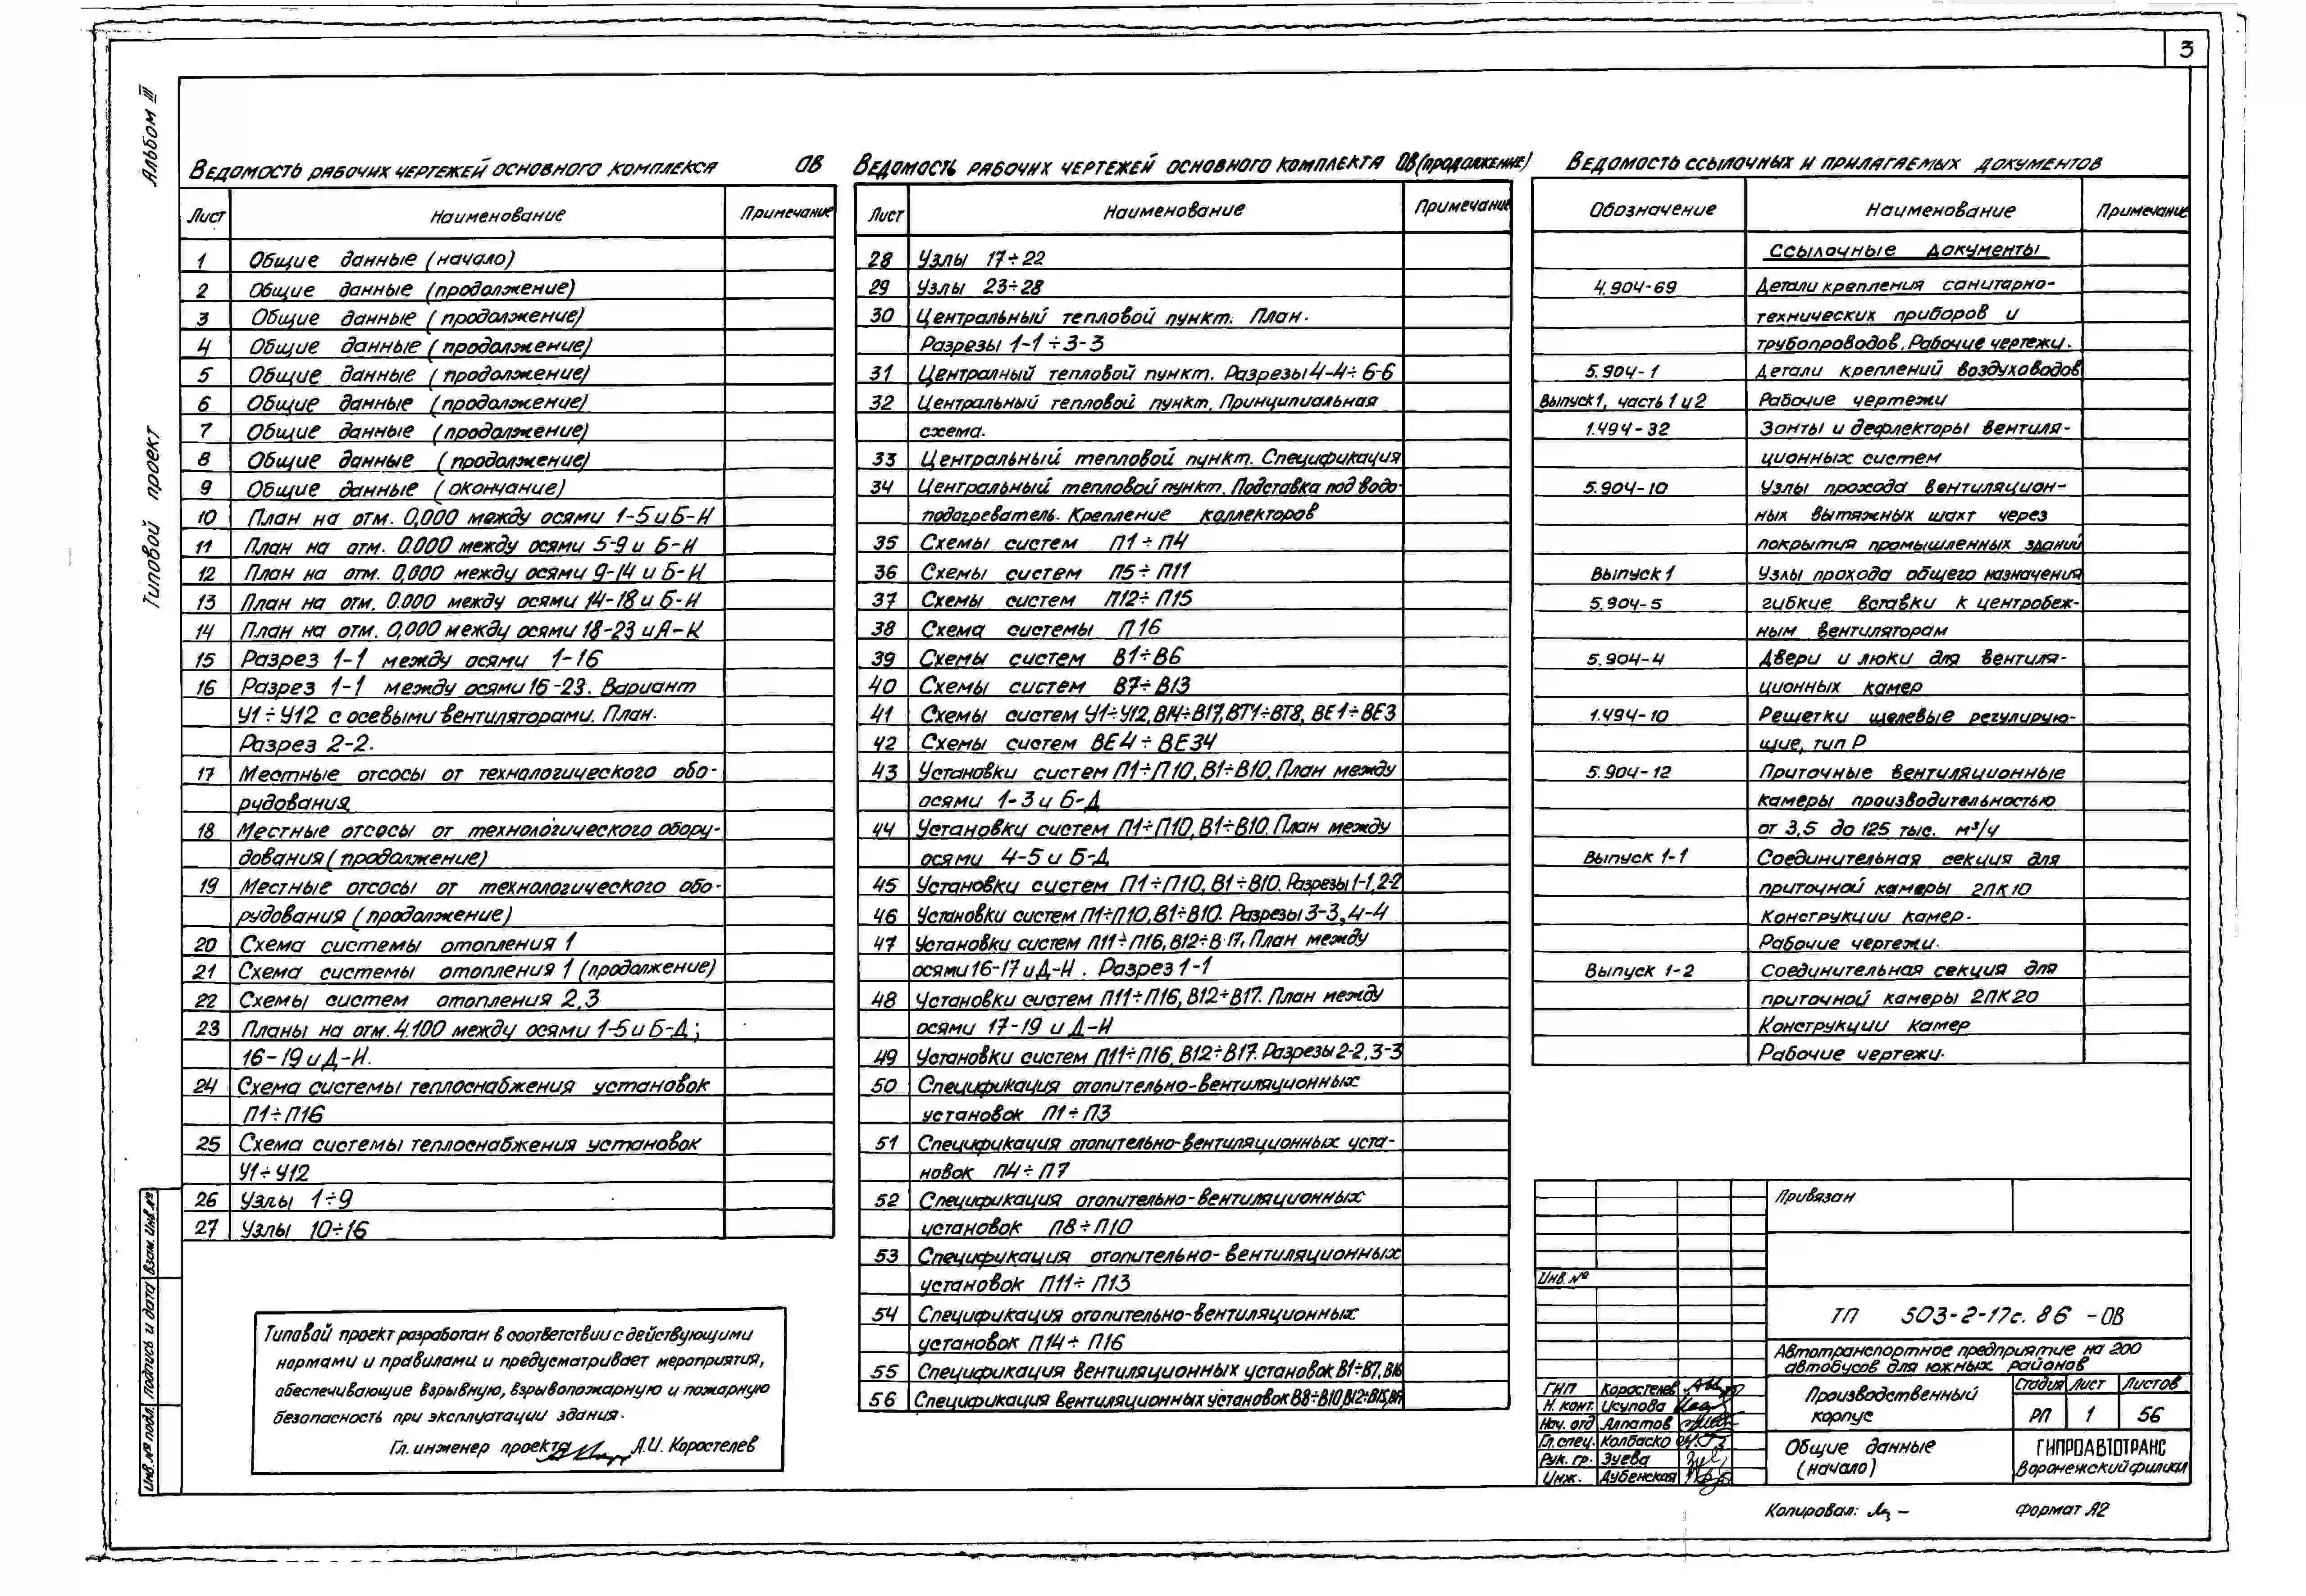 3
Альбом III
Типовой проект
Ведомость рабочих чертежей основного комплекса ОВ
Лист Наименование Примечание
1 Общие данные (начало)
2 Общие данные (продолжение)
3 Общие данные (продолжение)
4 Общие данные (продолжение)
5 Общие данные (продолжение)
6 Общие данные (продолжение)
7 Общие данные (продолжение)
8 Общие данные (продолжение)
9 Общие данные (окончание)
10 План на отм. 0,000 между осями 1-5 и Б-И
11 План на отм. 0.000 между осями 5-9 и Б-И
12 План на отм. 0,000 между осями 9-14 и Б-И
13 План на отм. 0.000 между осями 14-18 и Б-И
14 План на отм. 0,000 между осями 18-23 и А-К
15 Разрез 1-1 между осями 1-16
16 Разрез 1-1 между осями 16-23. Вариант
У1÷У12 с осевыми вентиляторами. План.
Разрез 2-2.
17 Местные отсосы от технологического обо-
рудования
18 Местные отсосы от технологического обору-
дования (продолжение)
19 Местные отсосы от технологического обо-
рудования (продолжение)
20 Схема системы отопления 1
21 Схема системы отопления 1 (продолжение)
22 Схемы систем отопления 2,3
23 Планы на отм. 4.100 между осями 1-5 и Б-Д;
16-19 и Д-И.
24 Схема системы теплоснабжения установок
П1÷П16
25 Схема системы теплоснабжения установок
У1÷У12
26 Узлы 1÷9
27 Узлы 10÷16
Типовой проект разработан в соответствии с действующими
нормами и правилами и предусматривает мероприятия,
обеспечивающие взрывную, взрывопожарную и пожарную
безопасность при эксплуатации здания.
Гл. инженер проекта А.И. Коростелев
Ведомость рабочих чертежей основного комплекта ОВ (продолжение)
Лист Наименование Примечание
28 Узлы 17÷22
29 Узлы 23÷28
30 Центральный тепловой пункт. План.
Разрезы 1-1÷3-3
31 Централный тепловой пункт. Разрезы 4-4÷6-6
32 Центральный тепловой пункт. Принципиальная
схема.
33 Центральный тепловой пункт. Спецификация
34 Центральный тепловой пункт. Подставка под водо-
подогреватель. Крепление коллекторов
35 Схемы систем П1÷П4
36 Схемы систем П5÷П11
37 Схемы систем П12÷П15
38 Схема системы П16
39 Схемы систем В1÷В6
40 Схемы систем В7÷В13
41 Схемы систем У1÷У12, В14÷В17, ВТ1÷ВТ8, ВЕ1÷ВЕ3
42 Схемы систем ВЕ4÷ВЕ34
43 Установки систем П1÷П10, В1÷В10. План между
осями 1-3 и Б-Д
44 Установки систем П1÷П10, В1÷В10. План между
осями 4-5 и Б-Д
45 Установки систем П1÷П10, В1÷В10. Разрезы 1-1, 2-2
46 Установки систем П1÷П10, В1÷В10. Разрезы 3-3, 4-4
47 Установки систем П11÷П16, В12÷В17. План между
осями 16-17 и Д-И. Разрез 1-1
48 Установки систем П11÷П16, В12÷В17. План между
осями 17-19 и Д-И
49 Установки систем П11÷П16, В12÷В17. Разрезы 2-2, 3-3
50 Спецификация отопительно-вентиляционных
установок П1÷П3
51 Спецификация отопительно-вентиляционных уста-
новок П4÷П7
52 Спецификация отопительно-вентиляционных
установок П8÷П10
53 Спецификация отопительно-вентиляционных
установок П11÷П13
54 Спецификация отопительно-вентиляционных
установок П14÷П16
55 Спецификация вентиляционных установок В1÷В7, В16
56 Спецификация вентиляционных установок В8÷В10, В12÷В15,
Ведомость ссылочных и прилагаемых документов
Обозначение Наименование Примечание
Ссылочные документы
4.904-69 Детали крепления санитарно-
технических приборов и
трубопроводов. Рабочие чертежи.
5.904-1 Детали креплений воздуховодов
Выпуск 1, часть 1 и 2 Рабочие чертежи
1.494-32 Зонты и дефлекторы вентиля-
ционных систем
5.904-10 Узлы прохода вентиляцион-
ных вытяжных шахт через
покрытия промышленных зданий
Выпуск 1 Узлы прохода общего назначения
5.904-5 Гибкие вставки к центробеж-
ным вентиляторам
5.904-4 Двери и люки для вентиля-
ционных камер
1.494-10 Решетки щелевые регулирую-
щие, тип Р
5.904-12 Приточные вентиляционные
камеры производительностью
от 3,5 до 125 тыс. м³/ч
Выпуск 1-1 Соединительная секция для
приточной камеры 2ПК10
Конструкции камер.
Рабочие чертежи.
Выпуск 1-2 Соединительная секция для
приточной камеры 2ПК20
Конструкции камер
Рабочие чертежи.
Привязан
Инв. №
ТП 503-2-17с.86 -ОВ
Автотранспортное предприятие на 200
автобусов для южных районов
ГИП Коростелев
Н. конт. Исупова
Нач. отд Алпатов
Гл. спец. Колбаско
Рук. гр. Зуева
Инж. Дубенская
Производственный
корпус
Стадия Лист Листов
РП 1 56
Общие данные
(начало)
ГИПРОАВТОТРАНС
Воронежский филиал
Копировал:
Формат А2
Инв. № подл. Подпись и дата Взам. инв. №